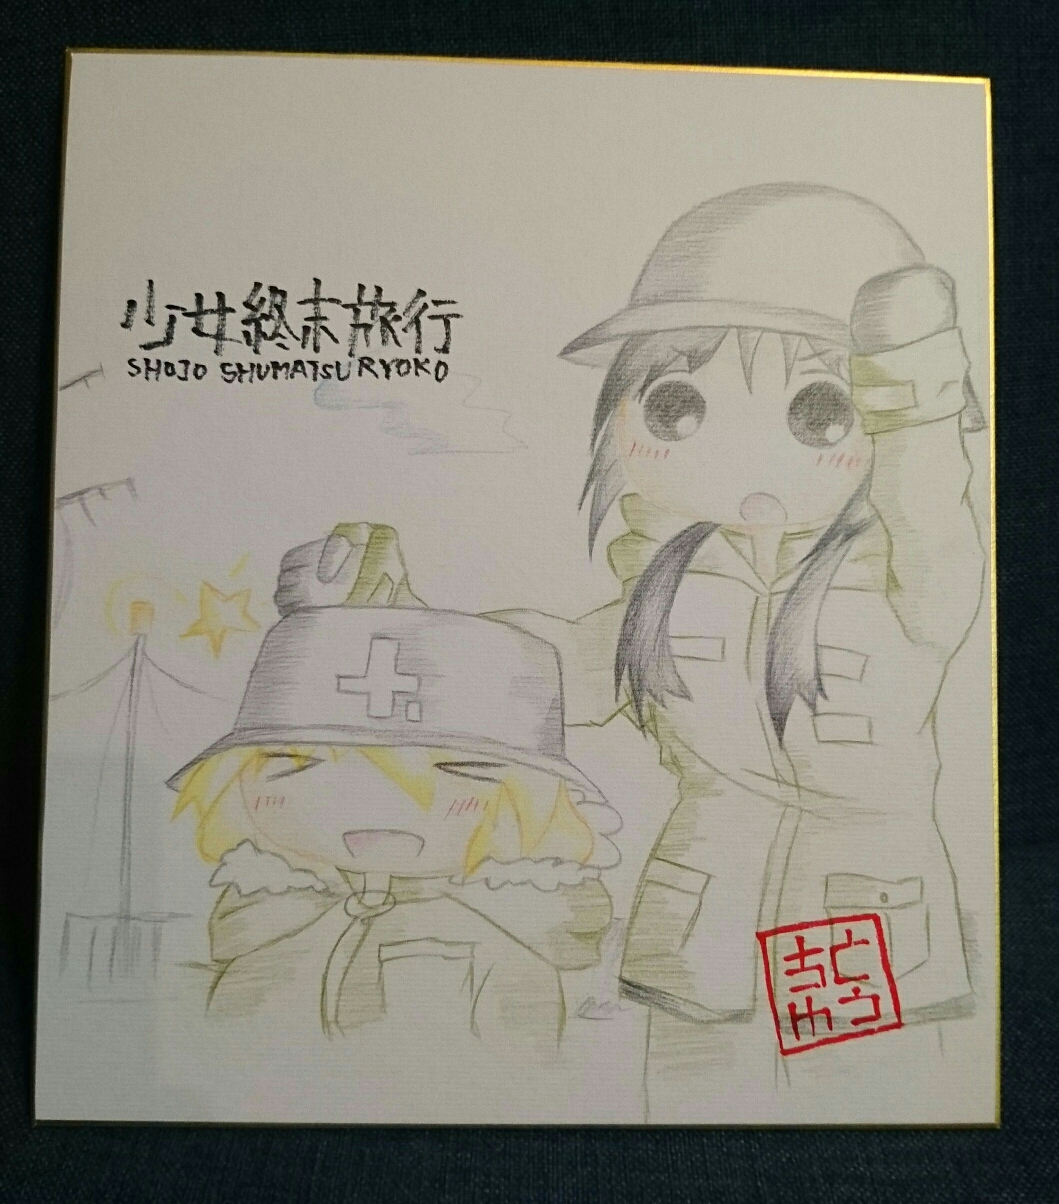 少女終末旅行
SHOJO SHUMATSU RYOKO
ちと
ゆう